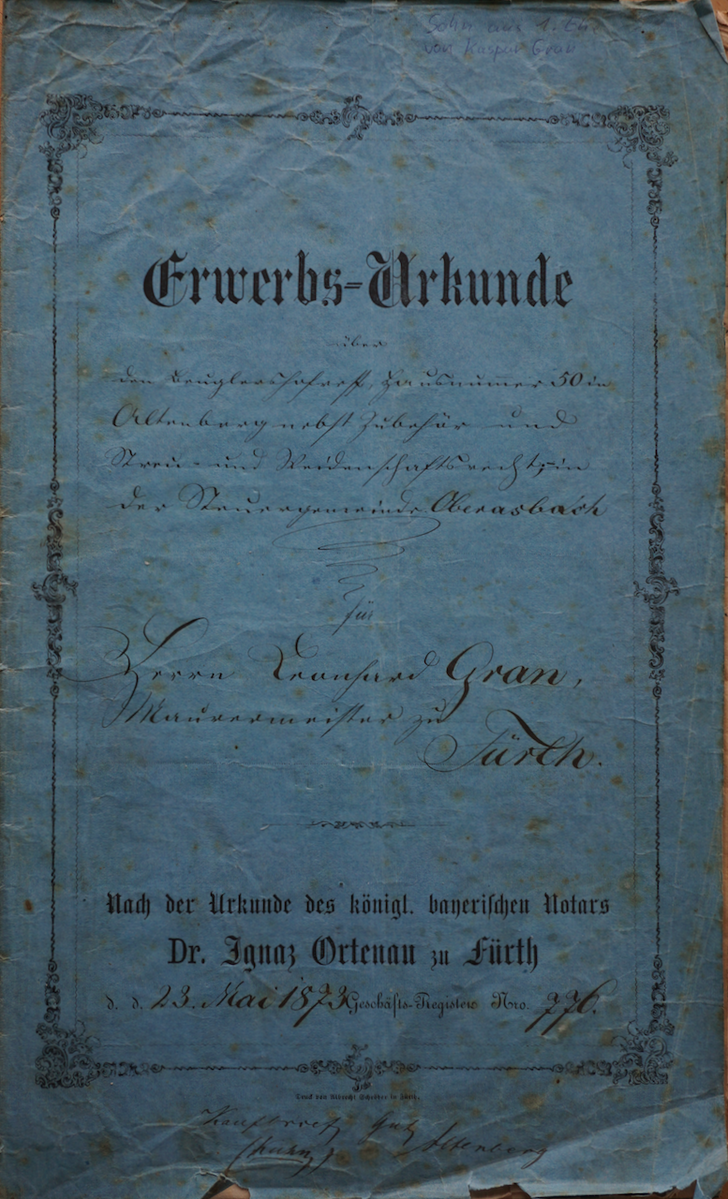 Sohn aus 1. Ehe
von Kaspar Gran
Erwerbs-Urkunde
über
den Beuglershofrest, Hausnummer 50 in
Altenberg nebst Zubehör und
Streu- und Weidenschaftsrecht, in
der Steuergemeinde Oberasbach
für
Herrn Leonhard Gran,
Maurermeister zu
Fürth.
Nach der Urkunde des königl. bayerischen Notars
Dr. Ignaz Ortenau zu Fürth
d. d. 23. Mai 1873 Geschäfts-Register Nro. 776.
Druck von Albrecht Schröder in Fürth.
Kaufbrief Gut
Altenberg